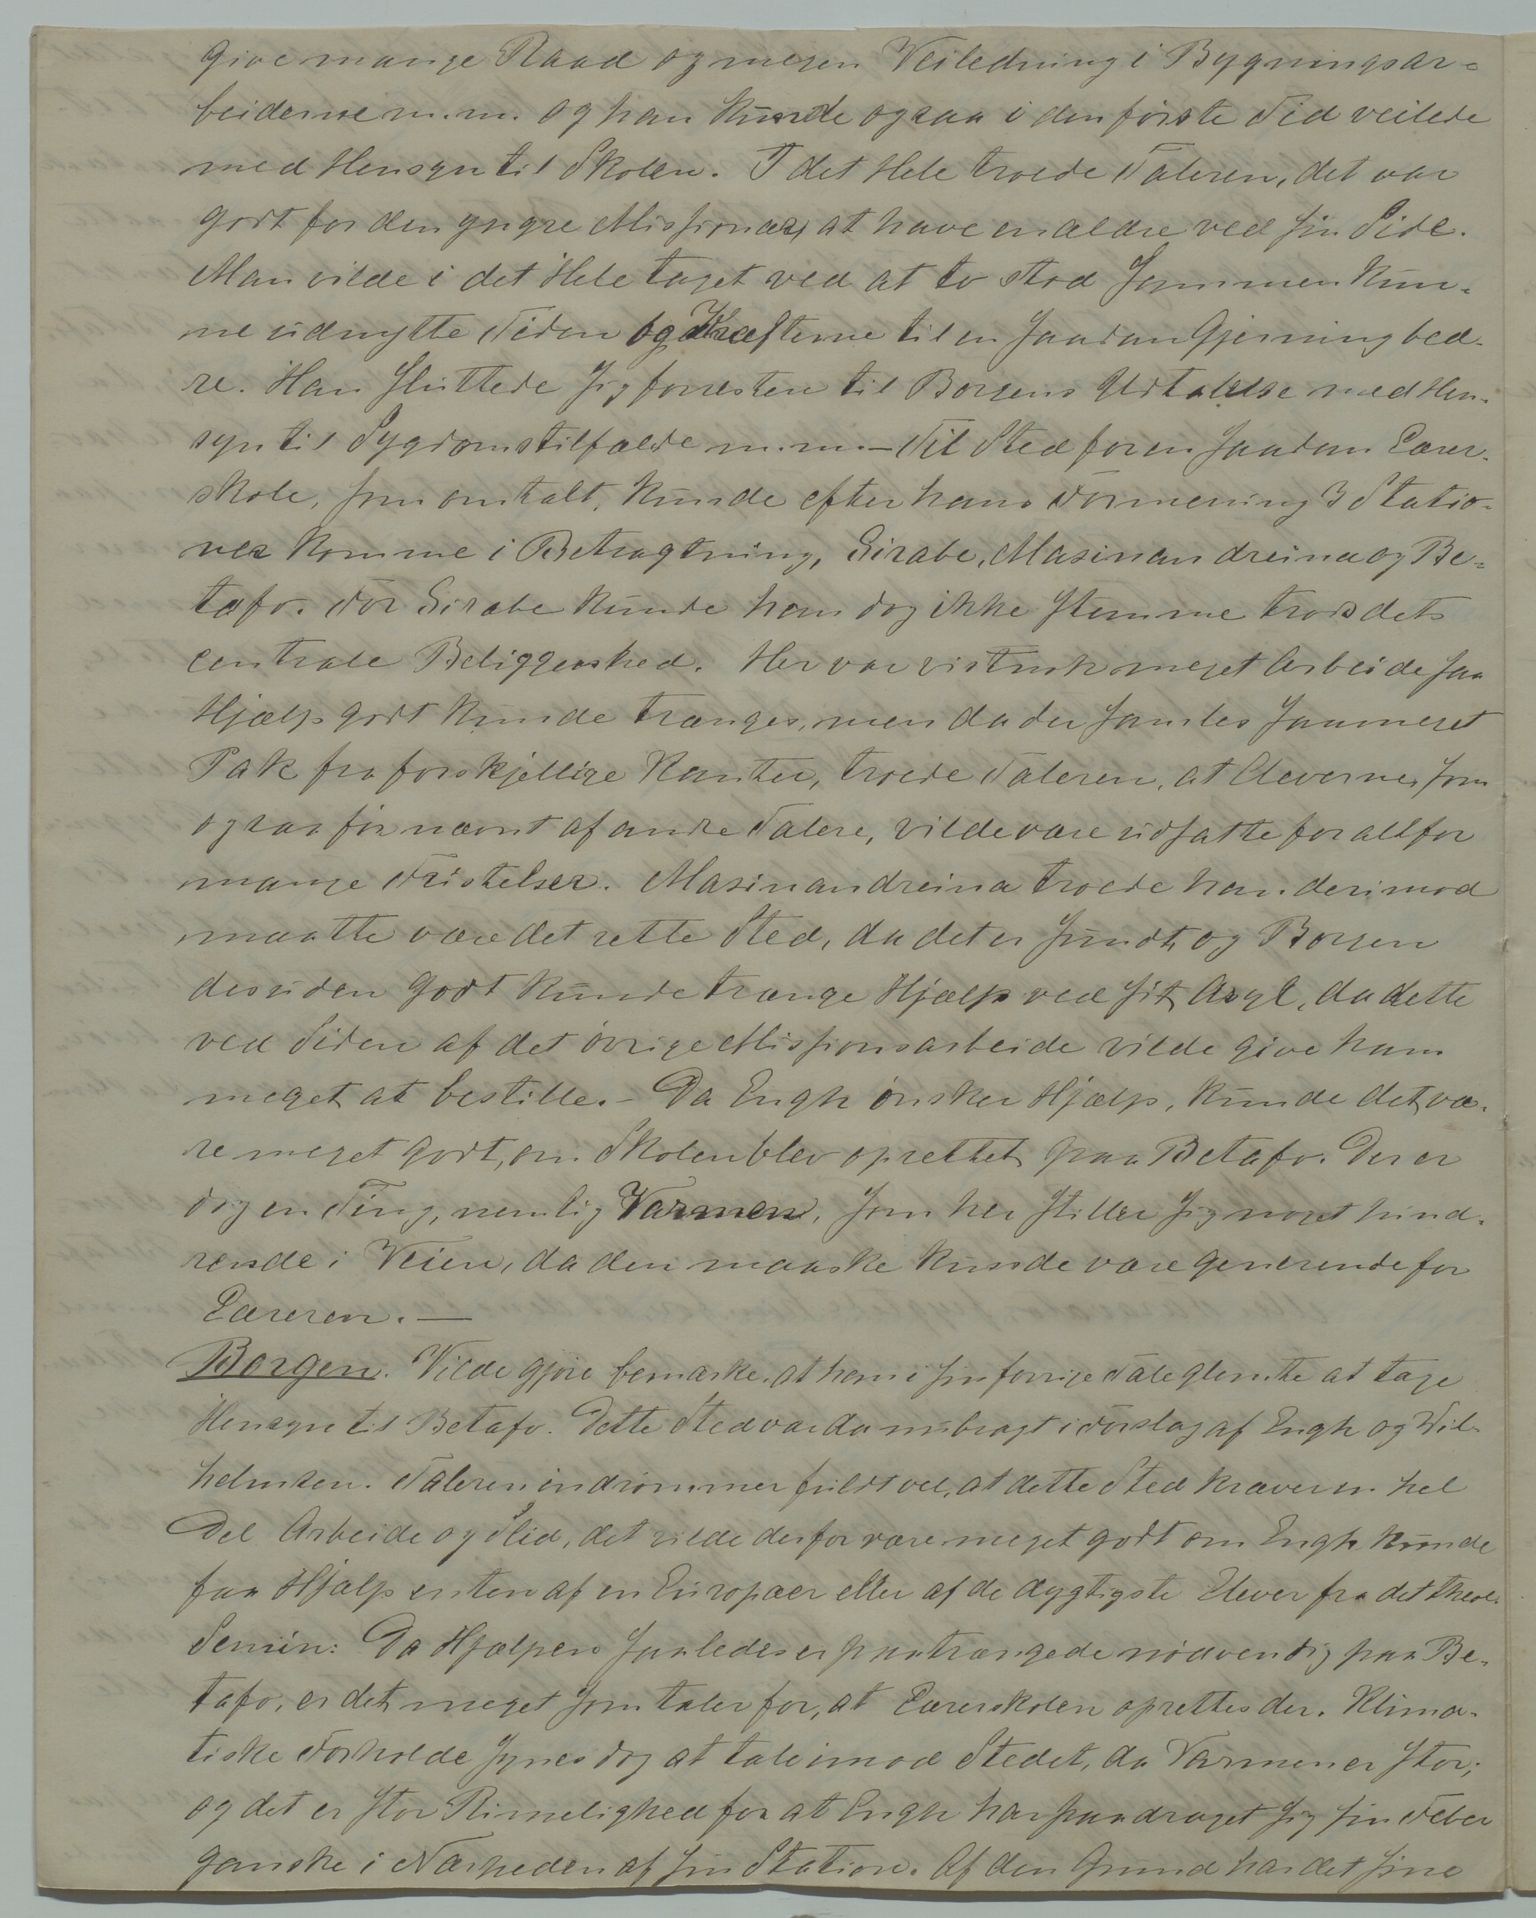 give mange Raad og megen Veiledning i Bygningsar-
beiderne m.m. og han kunde ogsaa i den første Tid veilede
med Hensyn til Skolen. I det Hele troede Taleren, det var
godt for den yngre Missionær, at have en ældre ved sin Side.
Man vilde i det Hele taget ved at to stod sammen kun-
ne udnytte Tiden og Kræfterne til en saadan Gjerning bed-
re. Han sluttede sig forresten til Borgens Udtalelse med Hen-
syn til Sygdomstilfælde m.m. — Til Sted for en saadan Lærer-
skole, som omtalt, kunde efter hans Formening 3 Statio-
ner komme i Betragtning, Sirabe, Masinandreina og Be-
tafo. For Sirabe kunde han dog ikke stemme trods dets
centrale Beliggenhed. Her var vistnok meget Arbeide saa
Hjælp godt kunde trænges, men da der samles saa meget
Pak fra forskjellige Kanter, troede Taleren, at Eleverne, som
ogsaa før nævnt af andre Talere, vilde være udsatte for altfor
mange Fristelser. Masinandreina troede han derimod
maatte være det rette Sted, da det er sundt, og Borgen
desuden godt kunde trænge Hjælp ved sit Asyl, da dette
ved Siden af det øvrige Missionsarbeide vilde give ham
meget at bestille. — Da Engh ønsker Hjælp, kunde det væ-
re meget godt, om Skolen blev oprettet paa Betafo. Der er
dog en Ting, nemlig Varmen, som her stiller sig noget hind-
rende i Veien, da den maaske kunde være generende for
Læreren. —
Borgen. Vilde gjøre bemærke, at han i sin forrige Tale glemte at tage
Hensyn til Betafo. Dette Sted var da nu bragt i Forslag af Engh og Wil-
helmsen. Taleren indrømmer fuldt vel, at dette Sted kræver en hel
Del Arbeide og Slid, det vilde derfor være meget godt om Engh kunde
faa Hjælp enten af en Europæer eller af de dygtigste Elever fra det theol.
Semin: Da Hjælpen saaledes er paatrængede nødvendig paa Be-
tafo, er det meget som taler for, at Lærerskolen oprettes der. Klima-
tiske Forholde synes dog at tale imod Stedet, da Varmen er stor;
og det er stor Rimelighed for at Engh har paadraget sig sin Feber
ganske i Nærheden af sin Station. Af den Grund har det sine